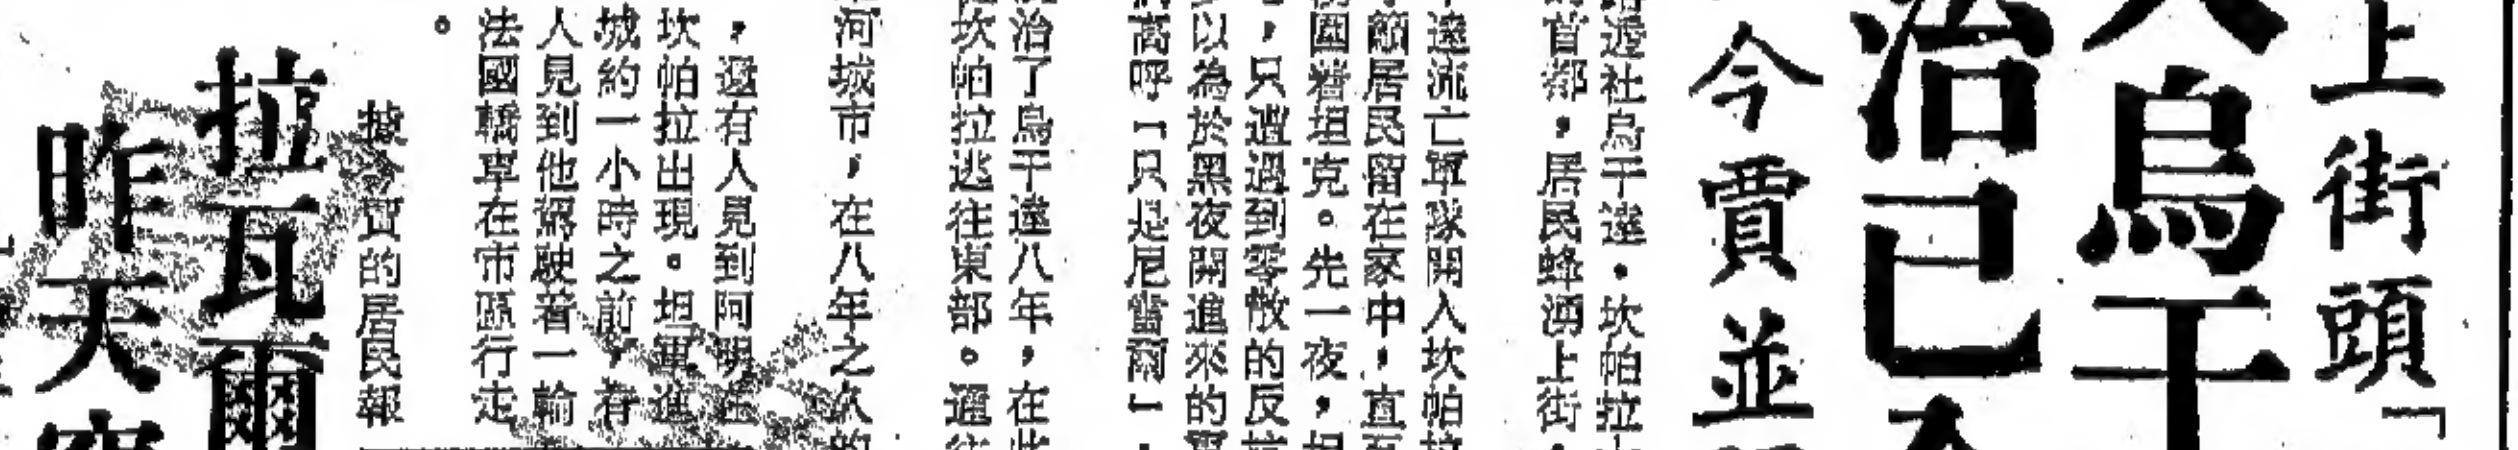 上街頭「
烏干
治已
今賈並
路透社烏干達・坎帕拉
首都，居民蜂湧上街
達流亡軍隊開入坎帕拉
節居民留在家中，直至
圍着坦克。先一夜，坦
，只遭遇到零散的反抗
以為於黑夜開進來的軍
高呼「只是尼雷爾」
治了烏干達八年，在此
坎帕拉逃往東部。通往
河城市，在八年之久的
，還有人見到阿明在
坎帕拉出現。坦軍進
城約一小時之前，有
人見到他駕駛着一輛
法國轎車在市區行走
。
據今賈的居民報
拉瓦爾
昨天